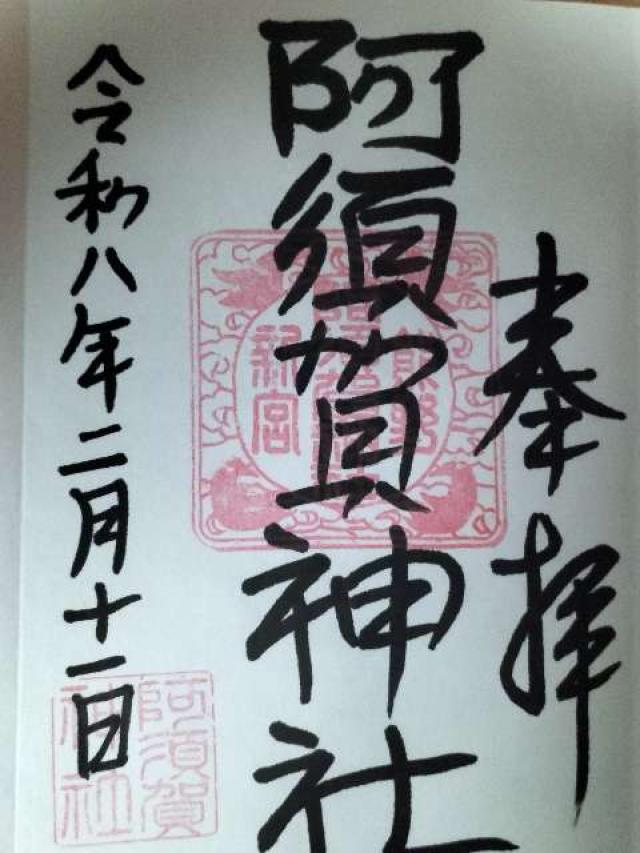 奉拝
阿須賀神社
令和八年二月十一日
熊野
新宮
阿須賀
神社